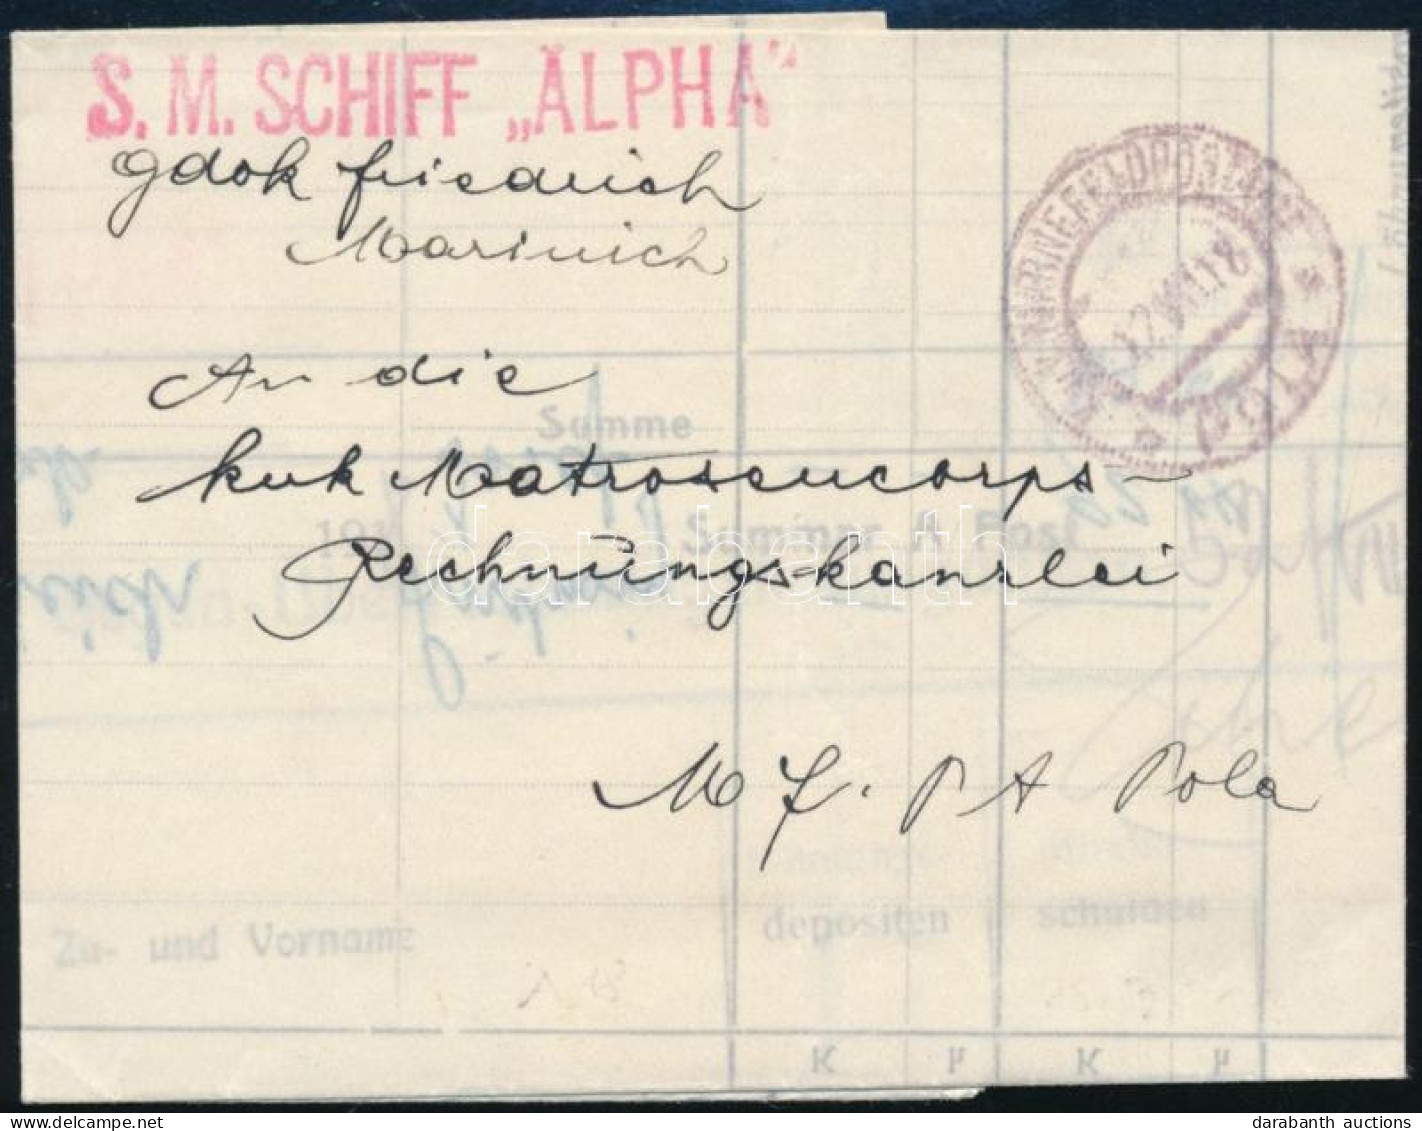 S. M. SCHIFF „ALPHA"
Gdok Friedrich
Marinich
An die
kuk Matrosencorps-
Rechnungskanzlei
M F. P A Pola
K.u.K. MARINEFELDPOSTAMT
POLA
12.VIII.18
Summe
191
Summar A Post
darabanth
depositen
schulden
Zu- und Vorname
K H K H
darabanth auctions